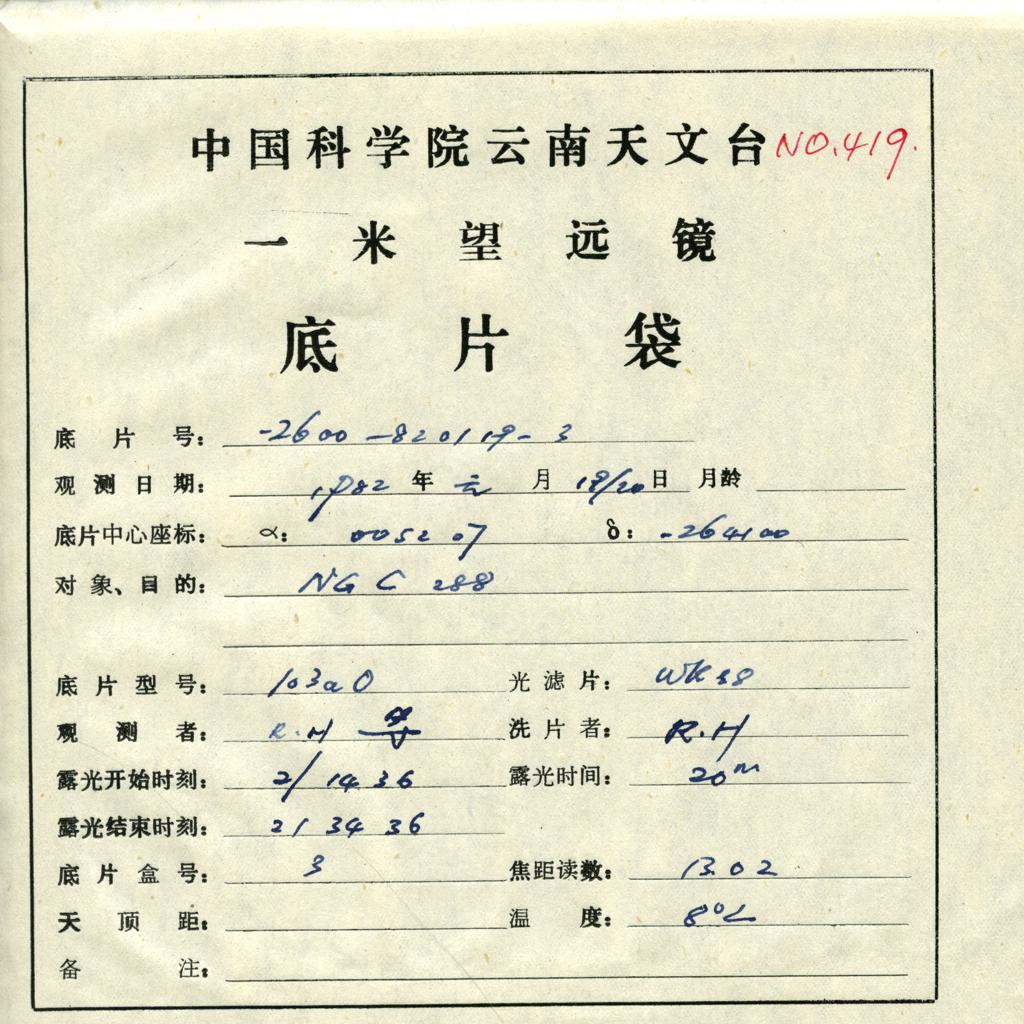 中国科学院云南天文台 NO.419.
一米望远镜
底片袋
底片号： -2600-820119-3
观测日期： 1982 年 元 月 19/20 日 月龄
底片中心座标： α： 005207 δ： -264100
对象、目的： NGC 288
底片型号： 103aO 光滤片：
观测者： R.H 等 洗片者： R.H
露光开始时刻： 21 14 36 露光时间： 20m
露光结束时刻： 21 34 36
底片盒号： 3 焦距读数： 13.02
天顶距： 温度： 8°C
备注：